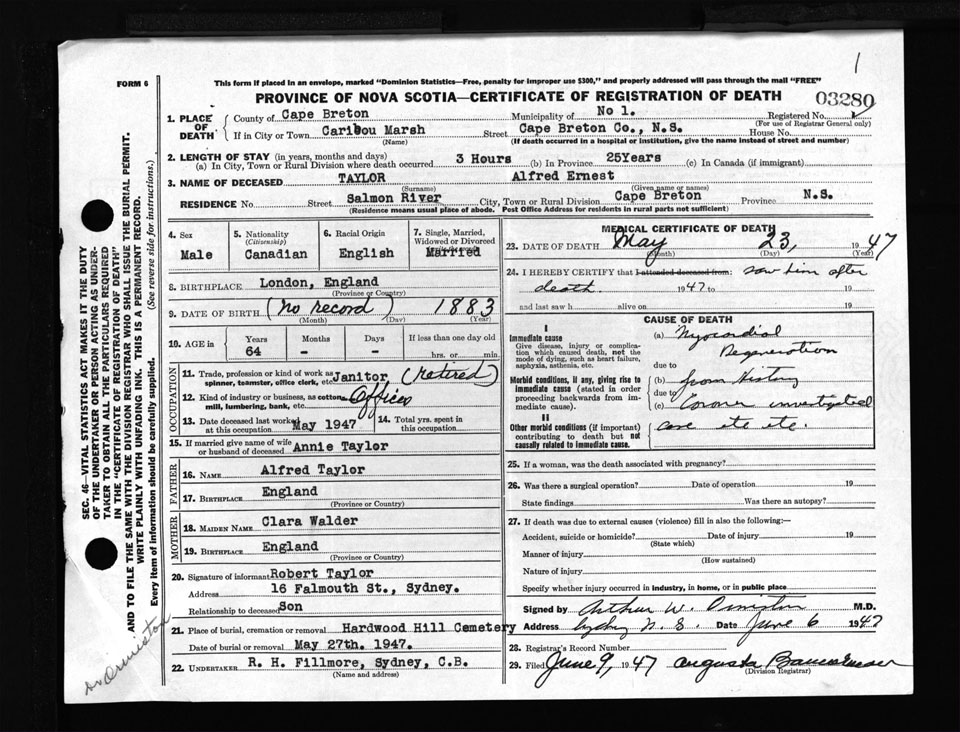 1
FORM 6
This form if placed in an envelope, marked "Dominion Statistics—Free, penalty for improper use $300," and properly addressed will pass through the mail "FREE"
PROVINCE OF NOVA SCOTIA—CERTIFICATE OF REGISTRATION OF DEATH
03280
1. PLACE OF DEATH
County of Cape Breton Municipality of No 1. Registered No.
(For use of Registrar General only)
If in City or Town Caribou Marsh Street Cape Breton Co., N.S. House No.
(Name) (If death occurred in a hospital or institution, give the name instead of street and number)
2. LENGTH OF STAY (in years, months and days)
(a) In City, Town or Rural Division where death occurred 3 Hours (b) In Province 25Years (c) In Canada (if immigrant)
3. NAME OF DECEASED TAYLOR Alfred Ernest
(Surname) (Given name or names)
RESIDENCE No. Street Salmon River City, Town or Rural Division Cape Breton Province N.S.
(Residence means usual place of abode. Post Office Address for residents in rural parts not sufficient)
4. Sex 5. Nationality (Citizenship) 6. Racial Origin 7. Single, Married, Widowed or Divorced
Male Canadian English Married
8. BIRTHPLACE London, England
(Province or Country)
9. DATE OF BIRTH (no record) 1883
(Month) (Day) (Year)
10. AGE in Years Months Days If less than one day old
64 - - hrs. or min.
OCCUPATION
11. Trade, profession or kind of work as spinner, teamster, office clerk, etc. Janitor (retired)
12. Kind of industry or business, as cotton mill, lumbering, bank, etc. Offices
13. Date deceased last worked at this occupation May 1947 14. Total yrs. spent in this occupation
15. If married give name of wife or husband of deceased Annie Taylor
FATHER
16. NAME Alfred Taylor
17. BIRTHPLACE England
MOTHER
18. MAIDEN NAME Clara Walder
19. BIRTHPLACE England
(Province or Country)
20. Signature of informant Robert Taylor
Address 16 Falmouth St., Sydney.
Relationship to deceased Son
21. Place of burial, cremation or removal Hardwood Hill Cemetery
Date of burial or removal May 27th. 1947.
22. UNDERTAKER R. H. Fillmore, Sydney, C.B.
(Name and address)
MEDICAL CERTIFICATE OF DEATH
23. DATE OF DEATH May 23, 1947
(Month) (Day) (Year)
24. I HEREBY CERTIFY that I attended deceased from: saw him after
death. 1947 to 19
and last saw h alive on 19
CAUSE OF DEATH
I
Immediate cause (a) Myocardial
Give disease, injury or complication which caused death, not the mode of dying, such as heart failure, asphyxia, asthenia, etc. Degeneration
due to
Morbid conditions, if any, giving rise to immediate cause (stated in order proceeding backwards from immediate cause). (b) from History
due to
(c) Coroner investigated
II
Other morbid conditions (if important) contributing to death but not causally related to immediate cause. case etc etc.
25. If a woman, was the death associated with pregnancy?
26. Was there a surgical operation? Date of operation 19
State findings Was there an autopsy?
27. If death was due to external causes (violence) fill in also the following:—
Accident, suicide or homicide? Date of injury 19
(State which)
Manner of injury
(How sustained)
Nature of injury
Specify whether injury occurred in industry, in home, or in public place
Signed by Arthur W. Ormiston M.D.
Address Sydney N.S. Date June 6 1947
28. Registrar's Record Number
29. Filed June 9, 1947 Augusta
(Division Registrar)
SEC. 46—VITAL STATISTICS ACT MAKES IT THE DUTY
OF THE UNDERTAKER OR PERSON ACTING AS UNDERTAKER TO OBTAIN ALL THE PARTICULARS REQUIRED
IN THE "CERTIFICATE OF REGISTRATION OF DEATH"
AND TO FILE THE SAME WITH THE DIVISION REGISTRAR WHO SHALL ISSUE THE BURIAL PERMIT.
WRITE PLAINLY WITH UNFADING INK. THIS IS A PERMANENT RECORD.
Every item of information should be carefully supplied. (See reverse side for instructions.)
Dr Ormiston